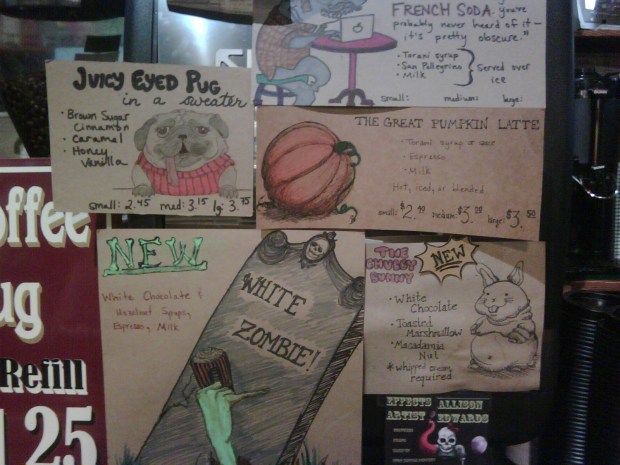 FRENCH SODA. you've
probably never heard of it—
it's pretty obscure."
• Torani syrup
• San Pellegrino
• Milk
Served over
ice
small: medium: large:
JUICY EYED PUG
in a sweater
• Brown Sugar
Cinnamon
• Caramel
• Honey
Vanilla
small: 2.45 med: 3.15 lg: 3.75
THE GREAT PUMPKIN LATTE
• Torani syrup
• Espresso
• Milk
Hot, iced, or blended
small: $2. medium: $3. large: $3.
offee
ug
Refill
1 25
NEW
White Chocolate &
Hazelnut Syrups,
Espresso, Milk
WHITE
ZOMBIE!
THE
CHUBBY
BUNNY
NEW
• White
Chocolate
• Toasted
Marshmallow
• Macadamia
Nut
* whipped cream
required
EFFECTS ALLISON
ARTIST EDWARDS